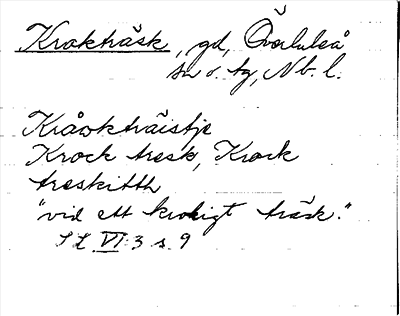 Krokträsk, gd, Överluleå
sn o. tg, Nb. l.
Kråokträistje
Krock tresk, Krock
treskitth
"vid ett krokigt träsk."
SL VI:3 s. 9